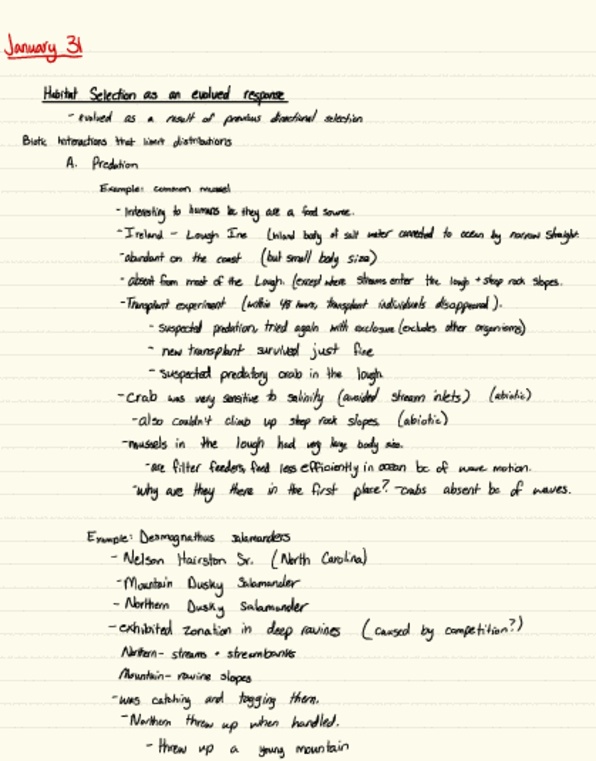 January 31
Habitat Selection as an evolved response
- evolved as a result of previous directional selection
Biotic Interactions that limit distributions
A. Predation
Example: common mussel
- Interesting to humans bc they are a food source.
- Ireland - Lough Ine (inland body of salt water connected to ocean by narrow straight.
- abundant on the coast (but small body size)
- absent from most of the Lough. (except where streams enter the lough + steep rock slopes.
- Transplant experiment (within 48 hours, transplant individuals disappeared).
- suspected predation, tried again with exclosure (excludes other organisms)
- new transplant survived just fine
- suspected predatory crab in the lough
- crab was very sensitive to salinity (avoided stream inlets) (abiotic)
- also couldn't climb up steep rock slopes. (abiotic)
- mussels in the lough had very large body size.
- are filter feeders, feed less efficiently in ocean bc of wave motion.
- why are they there in the first place? - crabs absent bc of waves.
Example: Desmognathus salamanders
- Nelson Hairston Sr. (North Carolina)
- Mountain Dusky Salamander
- Northern Dusky Salamander
- exhibited zonation in deep ravines (caused by competition?)
Northern - streams + streambanks
Mountain - ravine slopes
- was catching and tagging them.
- Northern threw up when handled.
- threw up a young mountain